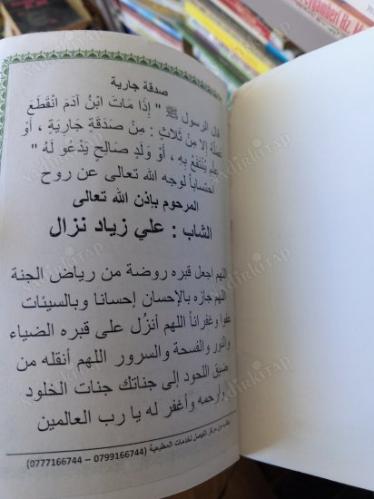 صدقة جارية
قال الرسول ﷺ " إِذَا مَاتَ ابْنُ آدَمَ انْقَطَعَ
عَمَلُهُ إِلا مِنْ ثَلاثٍ : مِنْ صَدَقَةٍ جَارِيَةٍ ، أَوْ
عِلْمٍ يُنْتَفَعُ بِهِ ، أَوْ وَلَدٍ صَالِحٍ يَدْعُو لَهُ "
احتساباً لوجه الله تعالى عن روح
المرحوم بإذن الله تعالى
الشاب : علي زياد نزال
اللهم اجعل قبره روضة من رياض الجنة
اللهم جازه بالإحسان إحسانا وبالسيئات
عفوا وغفراناً اللهم أنزُل على قبره الضياء
والنور والفسحة والسرور اللهم أنقله من
ضيق اللحود إلى جناتك جنات الخلود
وارحمه وأغفر له يا رب العالمين
لخدمات المطبعية (0799166744 – 0777166744)
nadirkitap